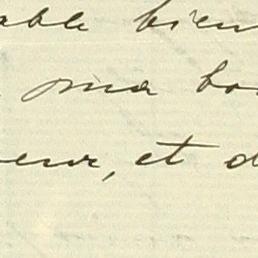 able bien
ma bo
eur, et d